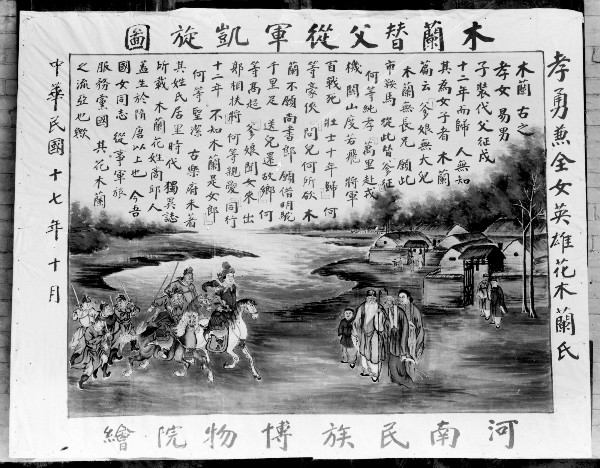 木蘭替父從軍凱旋圖
孝勇兼全女英雄花木蘭氏
木蘭 古之
孝女 易男
子裝代父征戍
十二年而歸 人無知
其為女子者 木蘭
篇云 爹娘無大兒
木蘭無長兄 願此
市鞍馬 從此替爹征
何等純孝 萬里赴戎
機 關山度若飛 將軍
百戰死 壯士十年歸 何
等豪俠 問兒何所欲 木
蘭不願尚書郎 願借明駝
千里足 送兒還故鄉 何
等高超 爹娘聞女來 出
郭相扶將 何等親愛 同行
十二年 不知木蘭是女郎
何等聖潔 古樂府未著
其姓氏居里時代 獨異誌
所載 木蘭花姓 商邱人
蓋生於隋唐以上也 今吾
國女同志 從事軍旅
服務黨國 其花木蘭
之流亞也歟
中華民國十七年十月
河南民族博物院繪